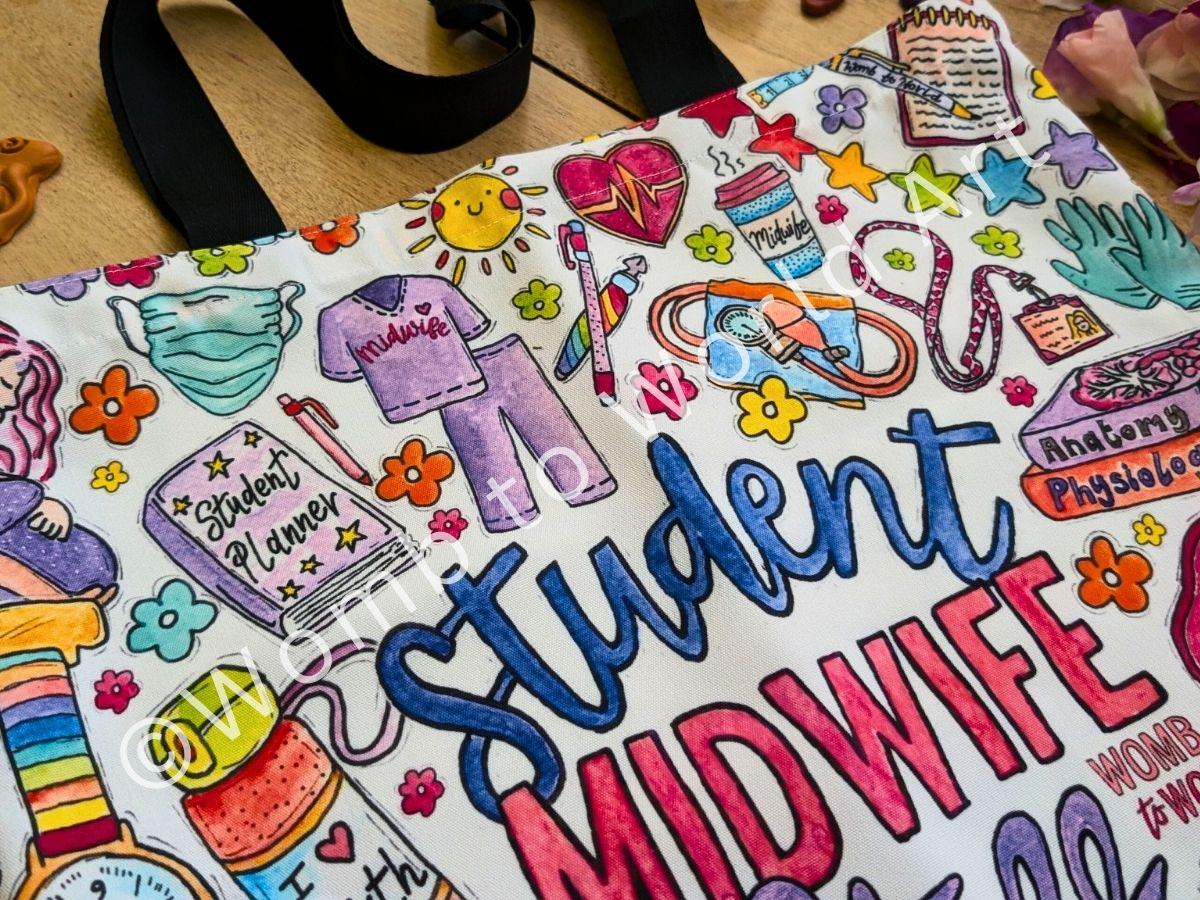 Womb to World
Midwife
midwife
Student
Planner
Anatomy
Physiology
Student
MIDWIFE
WOMB
to WO
I
©Womb to World Art